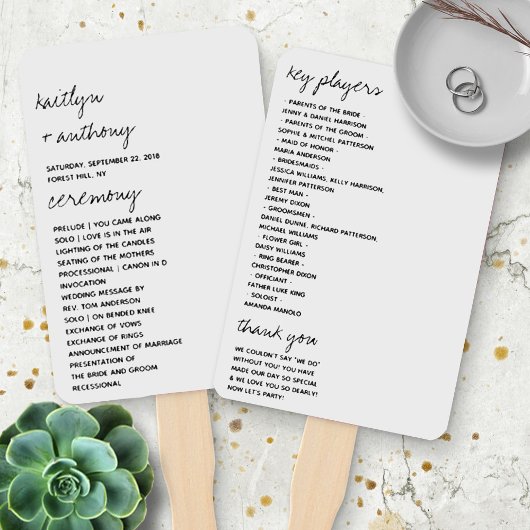 kaitlyn
+ anthony
SATURDAY, SEPTEMBER 22, 2018
FOREST HILL, NY
ceremony
PRELUDE | YOU CAME ALONG
SOLO | LOVE IS IN THE AIR
LIGHTING OF THE CANDLES
SEATING OF THE MOTHERS
PROCESSIONAL | CANON IN D
INVOCATION
WEDDING MESSAGE BY
REV. TOM ANDERSON
SOLO | ON BENDED KNEE
EXCHANGE OF VOWS
EXCHANGE OF RINGS
ANNOUNCEMENT OF MARRIAGE
PRESENTATION OF
THE BRIDE AND GROOM
RECESSIONAL
key players
- PARENTS OF THE BRIDE -
JENNY & DANIEL HARRISON
- PARENTS OF THE GROOM -
SOPHIE & MITCHEL PATTERSON
- MAID OF HONOR -
MARIA ANDERSON
- BRIDESMAIDS -
JESSICA WILLIAMS, KELLY HARRISON,
JENNIFER PATTERSON
- BEST MAN -
JEREMY DIXON
- GROOMSMEN -
DANIEL DUNNE, RICHARD PATTERSON,
MICHAEL WILLIAMS
- FLOWER GIRL -
DAISY WILLIAMS
- RING BEARER -
CHRISTOPHER DIXON
- OFFICIANT -
FATHER LUKE KING
- SOLOIST -
AMANDA MANOLO
thank you
WE COULDN'T SAY "WE DO"
WITHOUT YOU! YOU HAVE
MADE OUR DAY SO SPECIAL
& WE LOVE YOU SO DEARLY!
NOW LET'S PARTY!